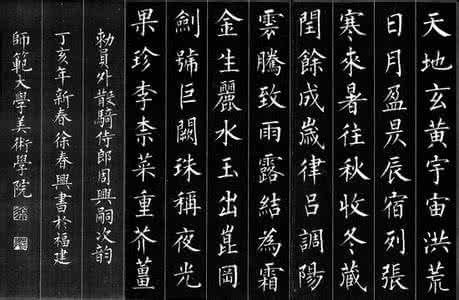 天地玄黃宇宙洪荒
日月盈昃辰宿列張
寒來暑往秋收冬藏
閏餘成歲律呂調陽
雲騰致雨露結為霜
金生麗水玉出崑岡
劍號巨闕珠稱夜光
果珍李柰菜重芥薑
勅員外散騎侍郎周興嗣次韵
丁亥年新春徐春興書於福建
師範大學美術學院